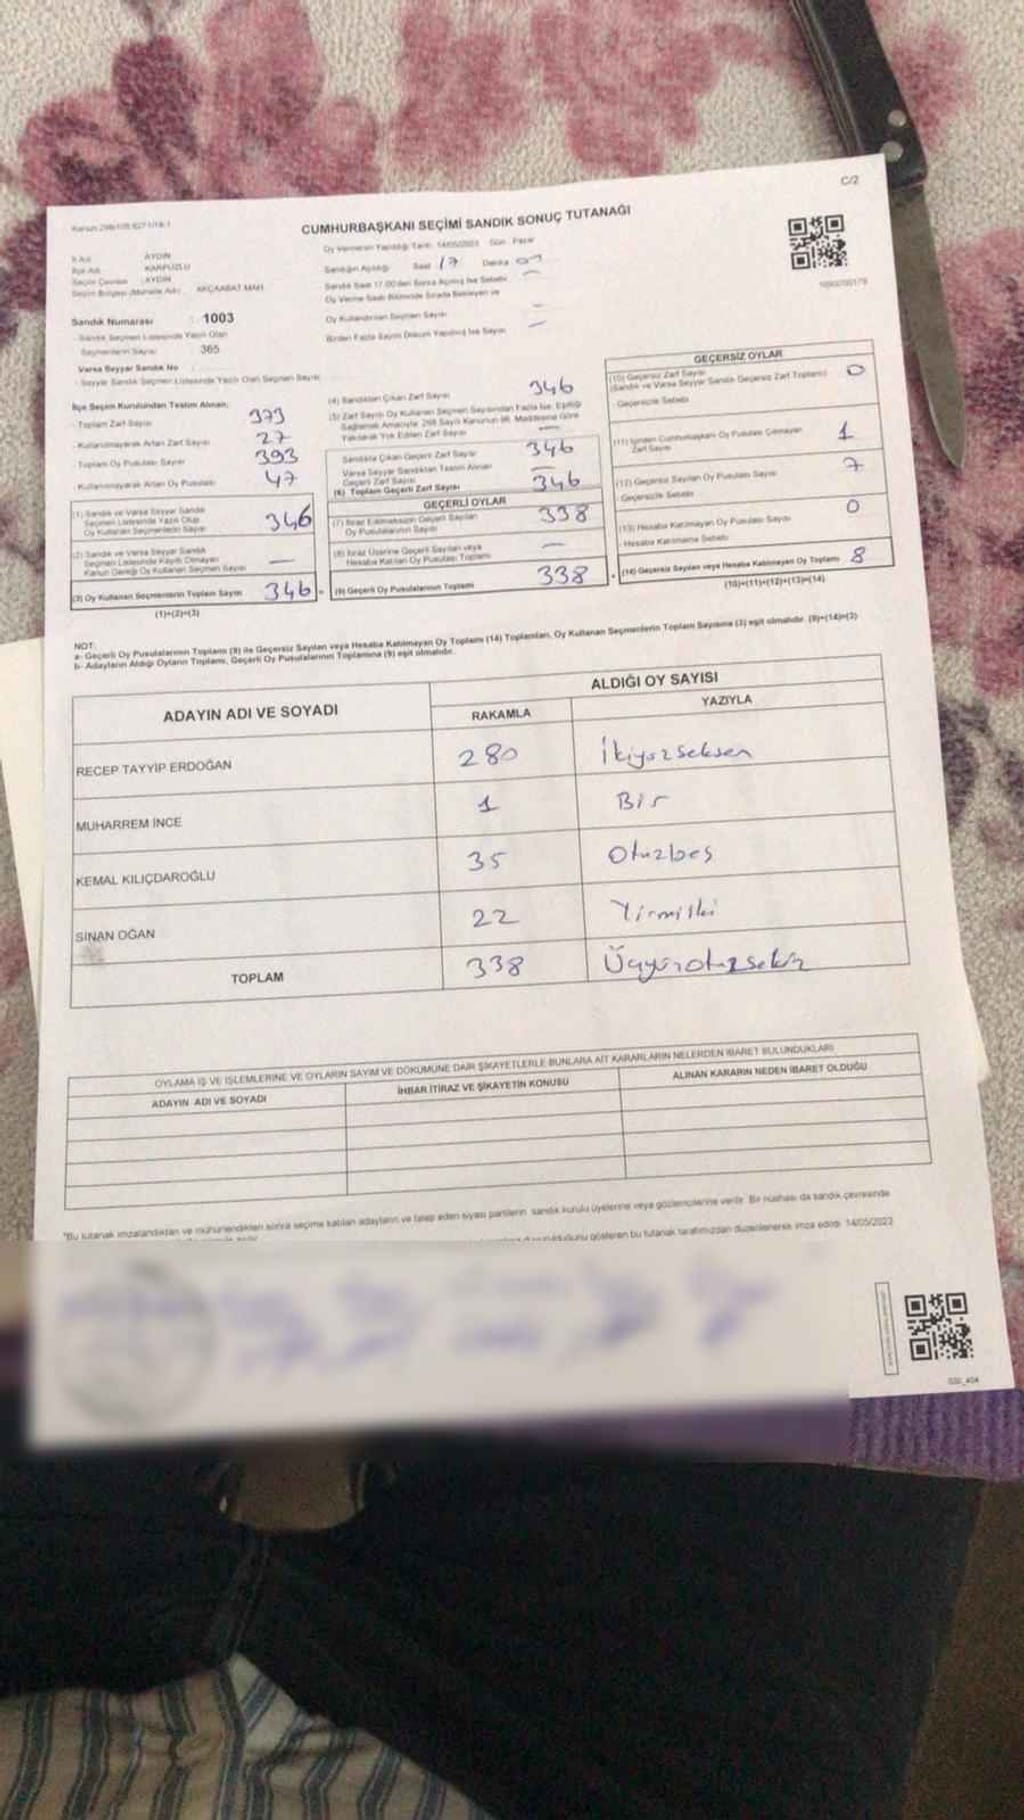 C/2
CUMHURBAŞKANI SEÇİMİ SANDIK SONUÇ TUTANAĞI
İl Adı AYDIN
İlçe Adı KARPUZLU
Seçim Çevresi AYDIN
Seçim Bölgesi (Muhtarlık Adı) AKÇAABAT MAH.
Sandık Numarası : 1003
Sandık Seçmen Listesinde Yazılı Olan
Seçmenlerin Sayısı 365
Varsa Seyyar Sandık No
Seyyar Sandık Seçmen Listesinde Yazılı Olan Seçmen Sayısı
Oy Vermenin Yapıldığı Tarih 14/05/2023 Gün Pazar
Sandığın Açıldığı Saat 17 Dakika
Sandık Saat 17.00'den Sonra Açılmış İse Sebebi
Oy Verme Saati Bitiminde Sırada Bekleyen ve
Oy Kullandırılan Seçmen Sayısı —
Birden Fazla Sayım Döküm Yapılmış İse Sayısı —
İlçe Seçim Kurulundan Teslim Alınan;
- Toplam Zarf Sayısı 373
- Kullanılmayarak Artan Zarf Sayısı 27
- Toplam Oy Pusulası Sayısı 393
- Kullanılmayarak Artan Oy Pusulası 47
(1) Sandık ve Varsa Seyyar Sandık
Seçmen Listesinde Yazılı Olup
Oy Kullanan Seçmenlerin Sayısı 346
(2) Sandık ve Varsa Seyyar Sandık
Seçmen Listesinde Kayıtlı Olmayan
Kanun Gereği Oy Kullanan Seçmen Sayısı —
(3) Oy Kullanan Seçmenlerin Toplam Sayısı 346
(1)+(2)=(3)
(4) Sandıktan Çıkan Zarf Sayısı 346
(5) Zarf Sayısı Oy Kullanan Seçmen Sayısından Fazla İse, Eşitliği
Sağlamak Amacıyla 298 Sayılı Kanunun 98. Maddesine Göre
Yakılarak Yok Edilen Zarf Sayısı —
Sandıkta Çıkan Geçerli Zarf Sayısı 346
Varsa Seyyar Sandıktan Teslim Alınan
Geçerli Zarf Sayısı —
(6) Toplam Geçerli Zarf Sayısı 346
GEÇERLİ OYLAR
(7) İtiraz Edilmeksizin Geçerli Sayılan
Oy Pusulalarının Sayısı 338
(8) İtiraz Üzerine Geçerli Sayılan veya
Hesaba Katılan Oy Pusulası Toplamı —
(9) Geçerli Oy Pusulalarının Toplamı 338
GEÇERSİZ OYLAR
(10) Geçersiz Zarf Sayısı
(Sandık ve Varsa Seyyar Sandık Geçersiz Zarf Toplamı) 0
Geçersizlik Sebebi
(11) İçinden Cumhurbaşkanı Oy Pusulası Çıkmayan
Zarf Sayısı 1
(12) Geçersiz Sayılan Oy Pusulası Sayısı 7
Geçersizlik Sebebi
(13) Hesaba Katılmayan Oy Pusulası Sayısı 0
Hesaba Katılmama Sebebi
(14) Geçersiz Sayılan veya Hesaba Katılmayan Oy Toplamı 8
(10)+(11)+(12)+(13)=(14)
NOT:
a- Geçerli Oy Pusulalarının Toplamı (9) ile Geçersiz Sayılan veya Hesaba Katılmayan Oy Toplamı (14) Toplamları, Oy Kullanan Seçmenlerin Toplam Sayısına (3) eşit olmalıdır. (9)+(14)=(3)
b- Adayların Aldığı Oyların Toplamı, Geçerli Oy Pusulalarının Toplamına (9) eşit olmalıdır.
ADAYIN ADI VE SOYADI ALDIĞI OY SAYISI
RAKAMLA YAZIYLA
RECEP TAYYİP ERDOĞAN 280 İkiyüzseksen
MUHARREM İNCE 1 Bir
KEMAL KILIÇDAROĞLU 35 Otuzbeş
SİNAN OĞAN 22 Yirmiiki
TOPLAM 338 Üçyüzotuzsekiz
OYLAMA İŞ VE İŞLEMLERİNE VE OYLARIN SAYIM VE DÖKÜMÜNE DAİR ŞİKAYETLERLE BUNLARA AİT KARARLARIN NELERDEN İBARET BULUNDUKLARI
ADAYIN ADI VE SOYADI İHBAR İTİRAZ VE ŞİKAYETİN KONUSU ALINAN KARARIN NEDEN İBARET OLDUĞU
"Bu tutanak imzalandıktan ve mühürlendikten sonra seçime katılan adayların ve talep eden siyasi partilerin sandık kurulu üyelerine veya gözlemcilerine verilir. Bir nüshası da sandık çevresinde
gösteren bu tutanak tarafımızdan düzenlenerek imza edildi. 14/05/2023